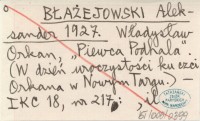 BŁAŻEJOWSKI Alek-
sander 1927. Władysław
Orkan, „Piewca Podhala".
(W dzień uroczystości ku czci
Orkana w Nowym Targu.) -
IKC 18, nr 217.